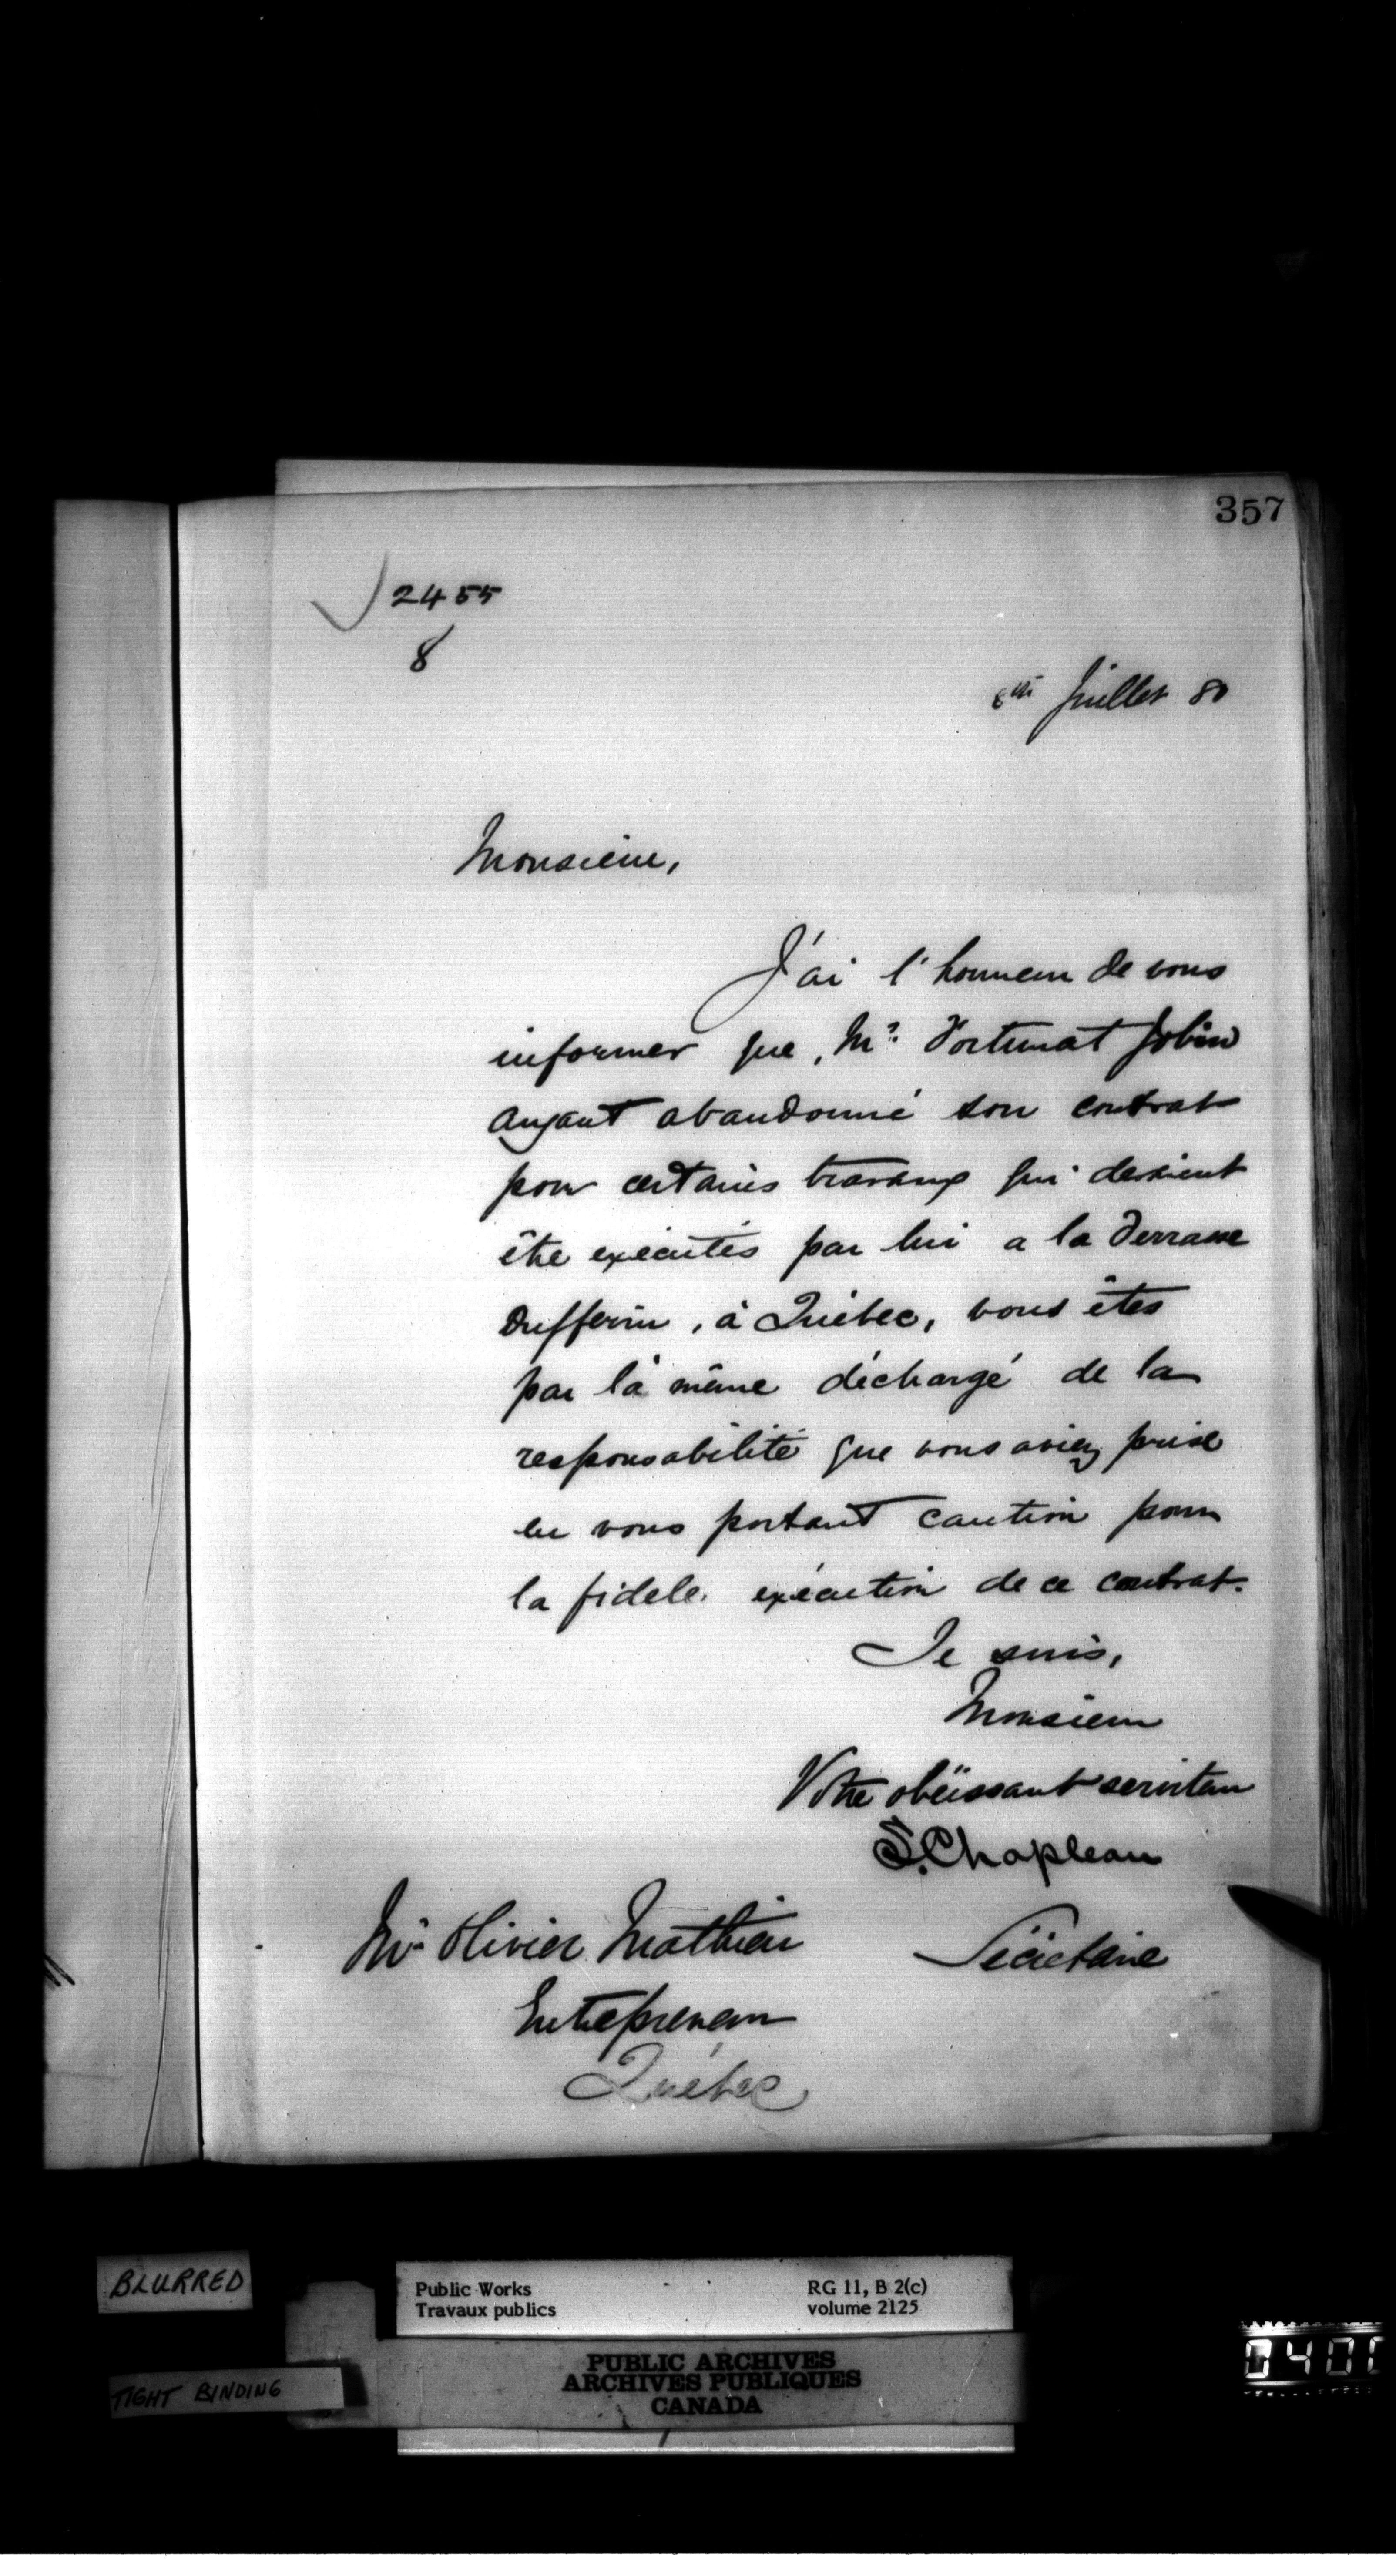 357
2455
8
Juillet 80
Monsieur,
J'ai l'honneur de vous
informer que, Mr. Fortunat Jobin
ayant abandonné son contrat
pour certains travaux qui devaient
être exécutés par lui a la Terrasse
Dufferin, à Québec, vous êtes
par là même déchargé de la
responsabilité que vous aviez prise
en vous portant caution pour
la fidele exécution de ce contrat.
Je suis,
Monsieur
Votre obéissant serviteur
S. Chapleau
Secrétaire
Mr Olivier Mathieu
Entrepreneur
Québec
BLURRED
TIGHT BINDING
Public Works
Travaux publics
RG 11, B 2(c)
volume 2125
PUBLIC ARCHIVES
ARCHIVES PUBLIQUES
CANADA